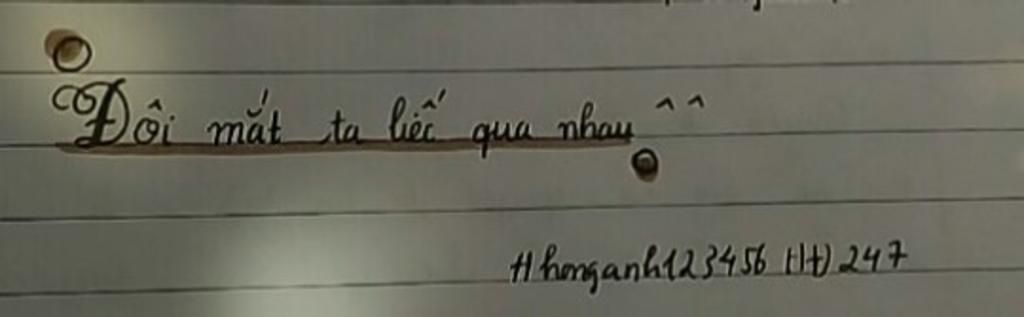 Đôi mắt ta liếc qua nhau ^^
#honganh123456